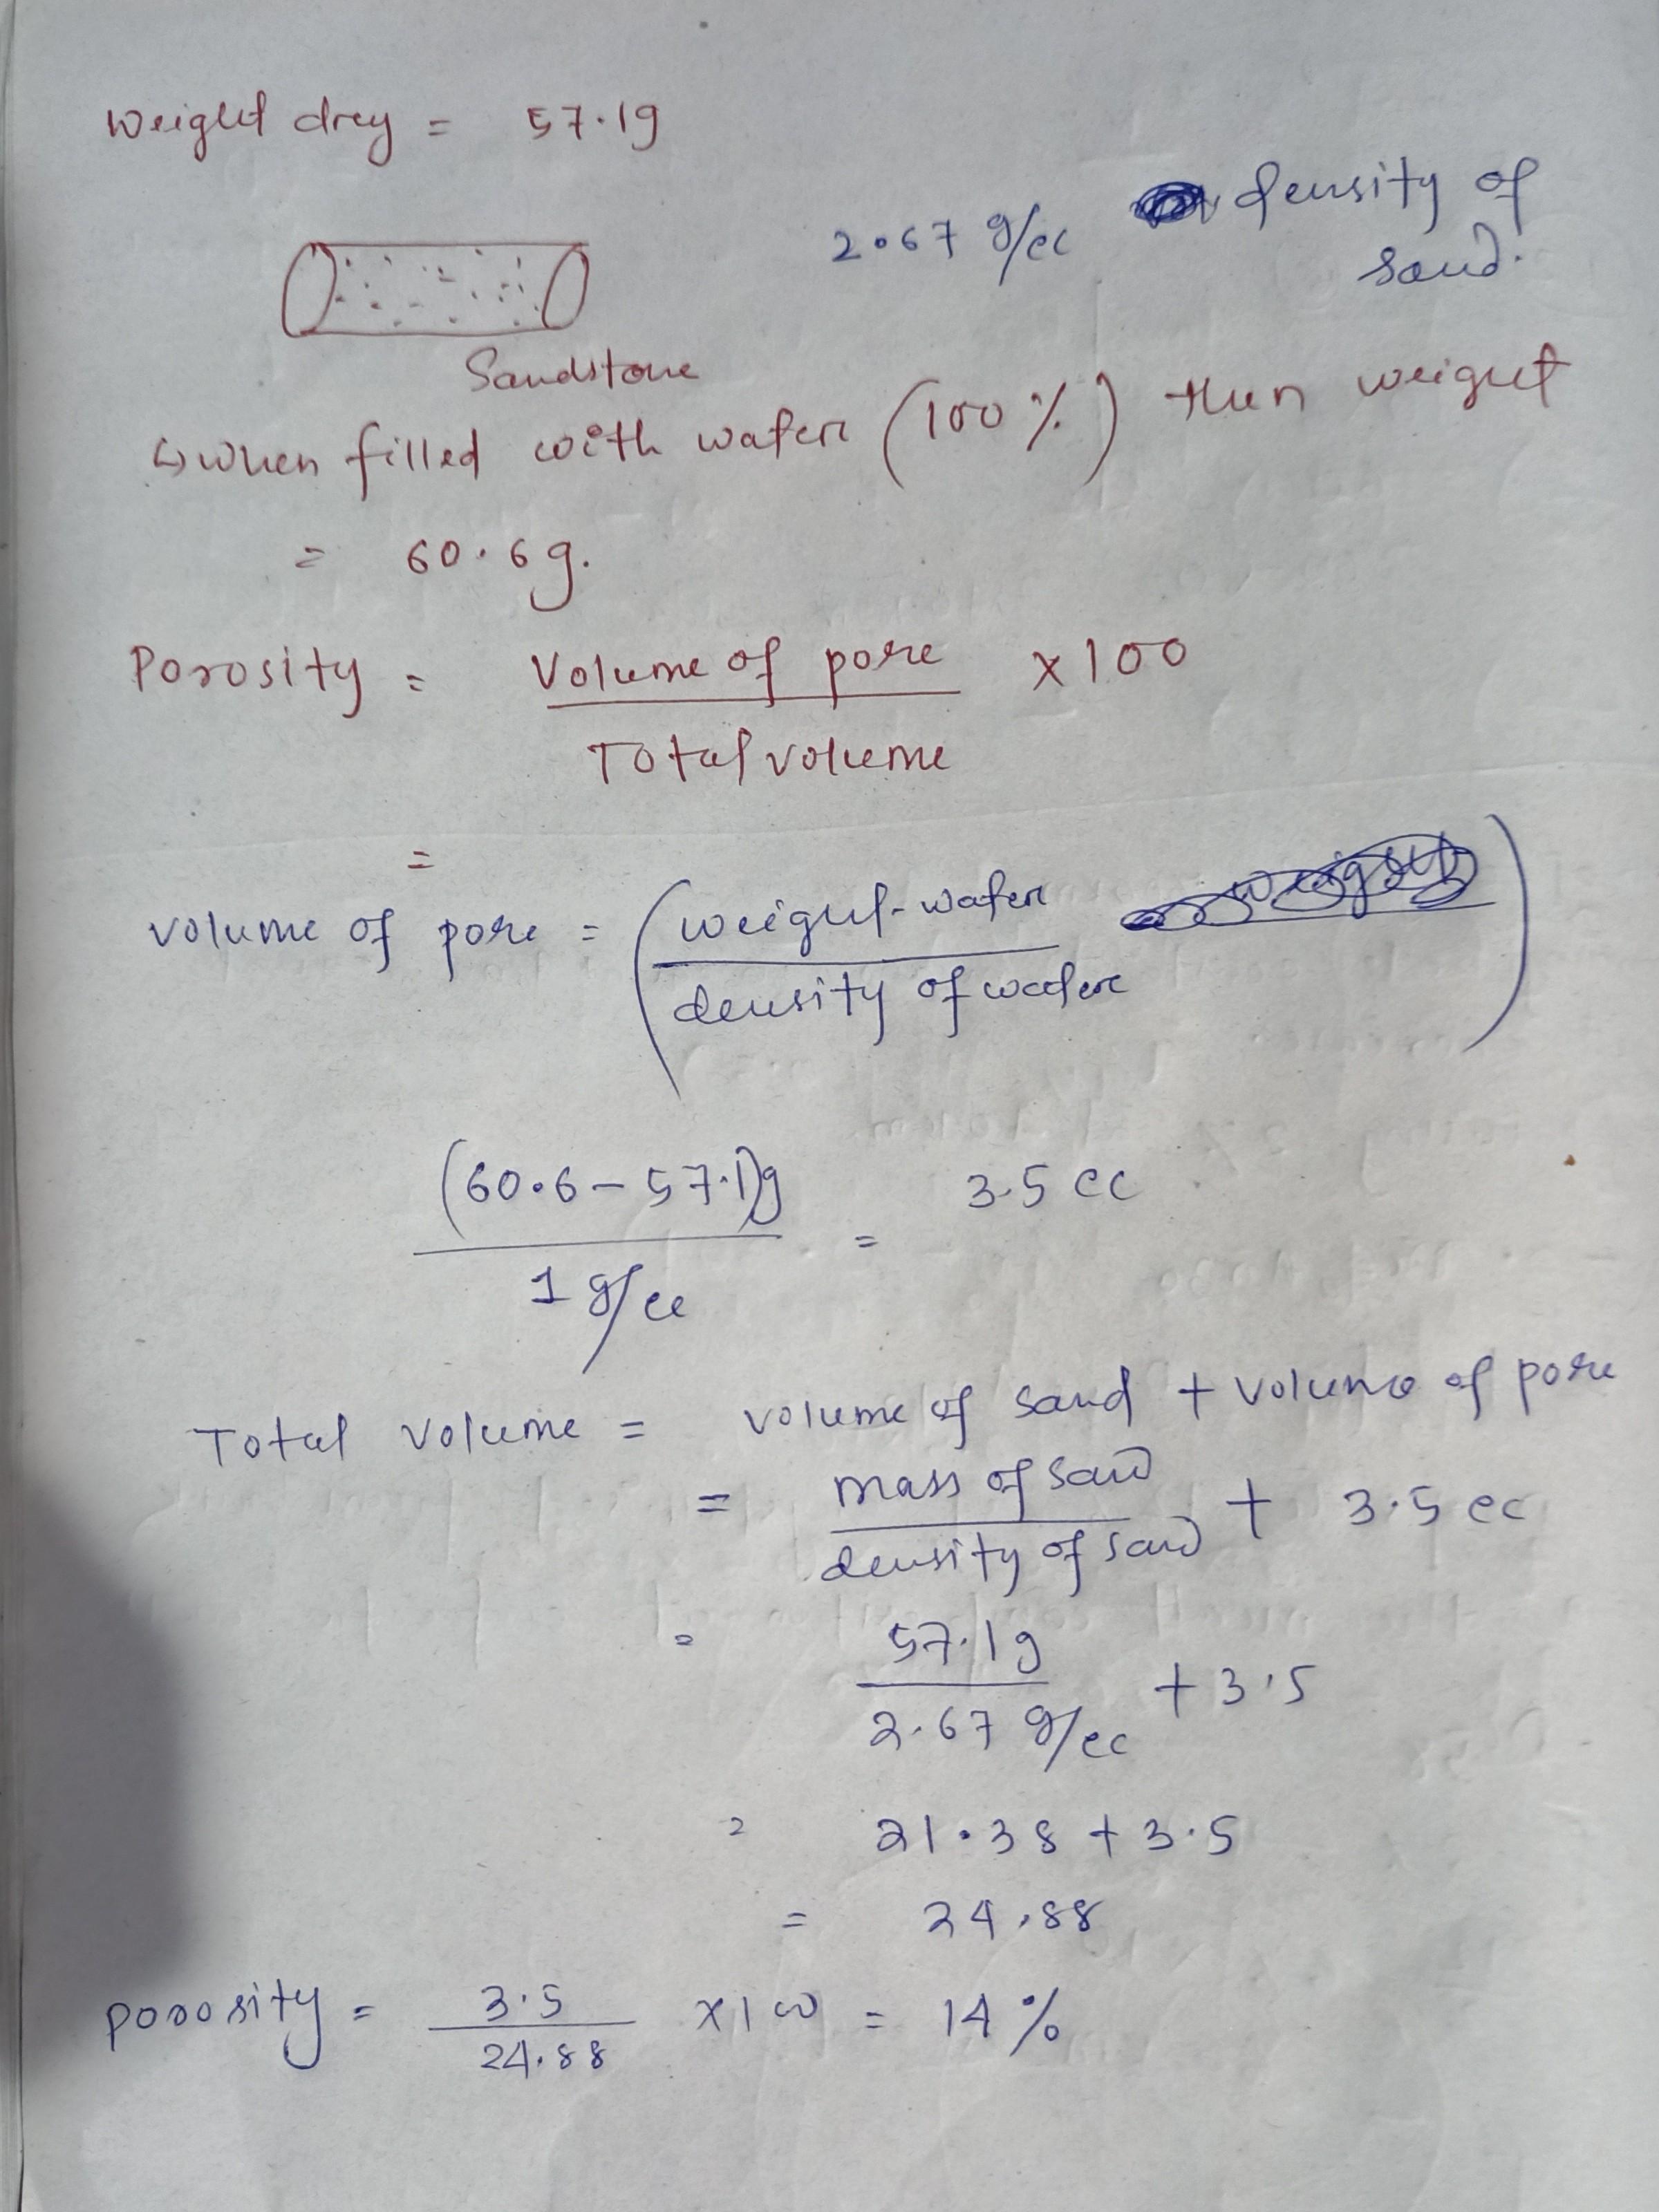 Weight dry = 57.1g
2.67 g/cc density of
sand.
Sandstone
↳ when filled with water (100%) then weight
= 60.6g.
Porosity = Volume of pore × 100
Total volume
=
volume of pore = (weight-water
density of water)
(60.6 - 57.1)g = 3.5 cc
1 g/cc
Total volume = volume of sand + volume of pore
= mass of sand + 3.5 cc
density of sand
= 57.1g + 3.5
2.67 g/cc
= 21.38 + 3.5
= 24.88
porosity = 3.5 × 100 = 14%
24.88